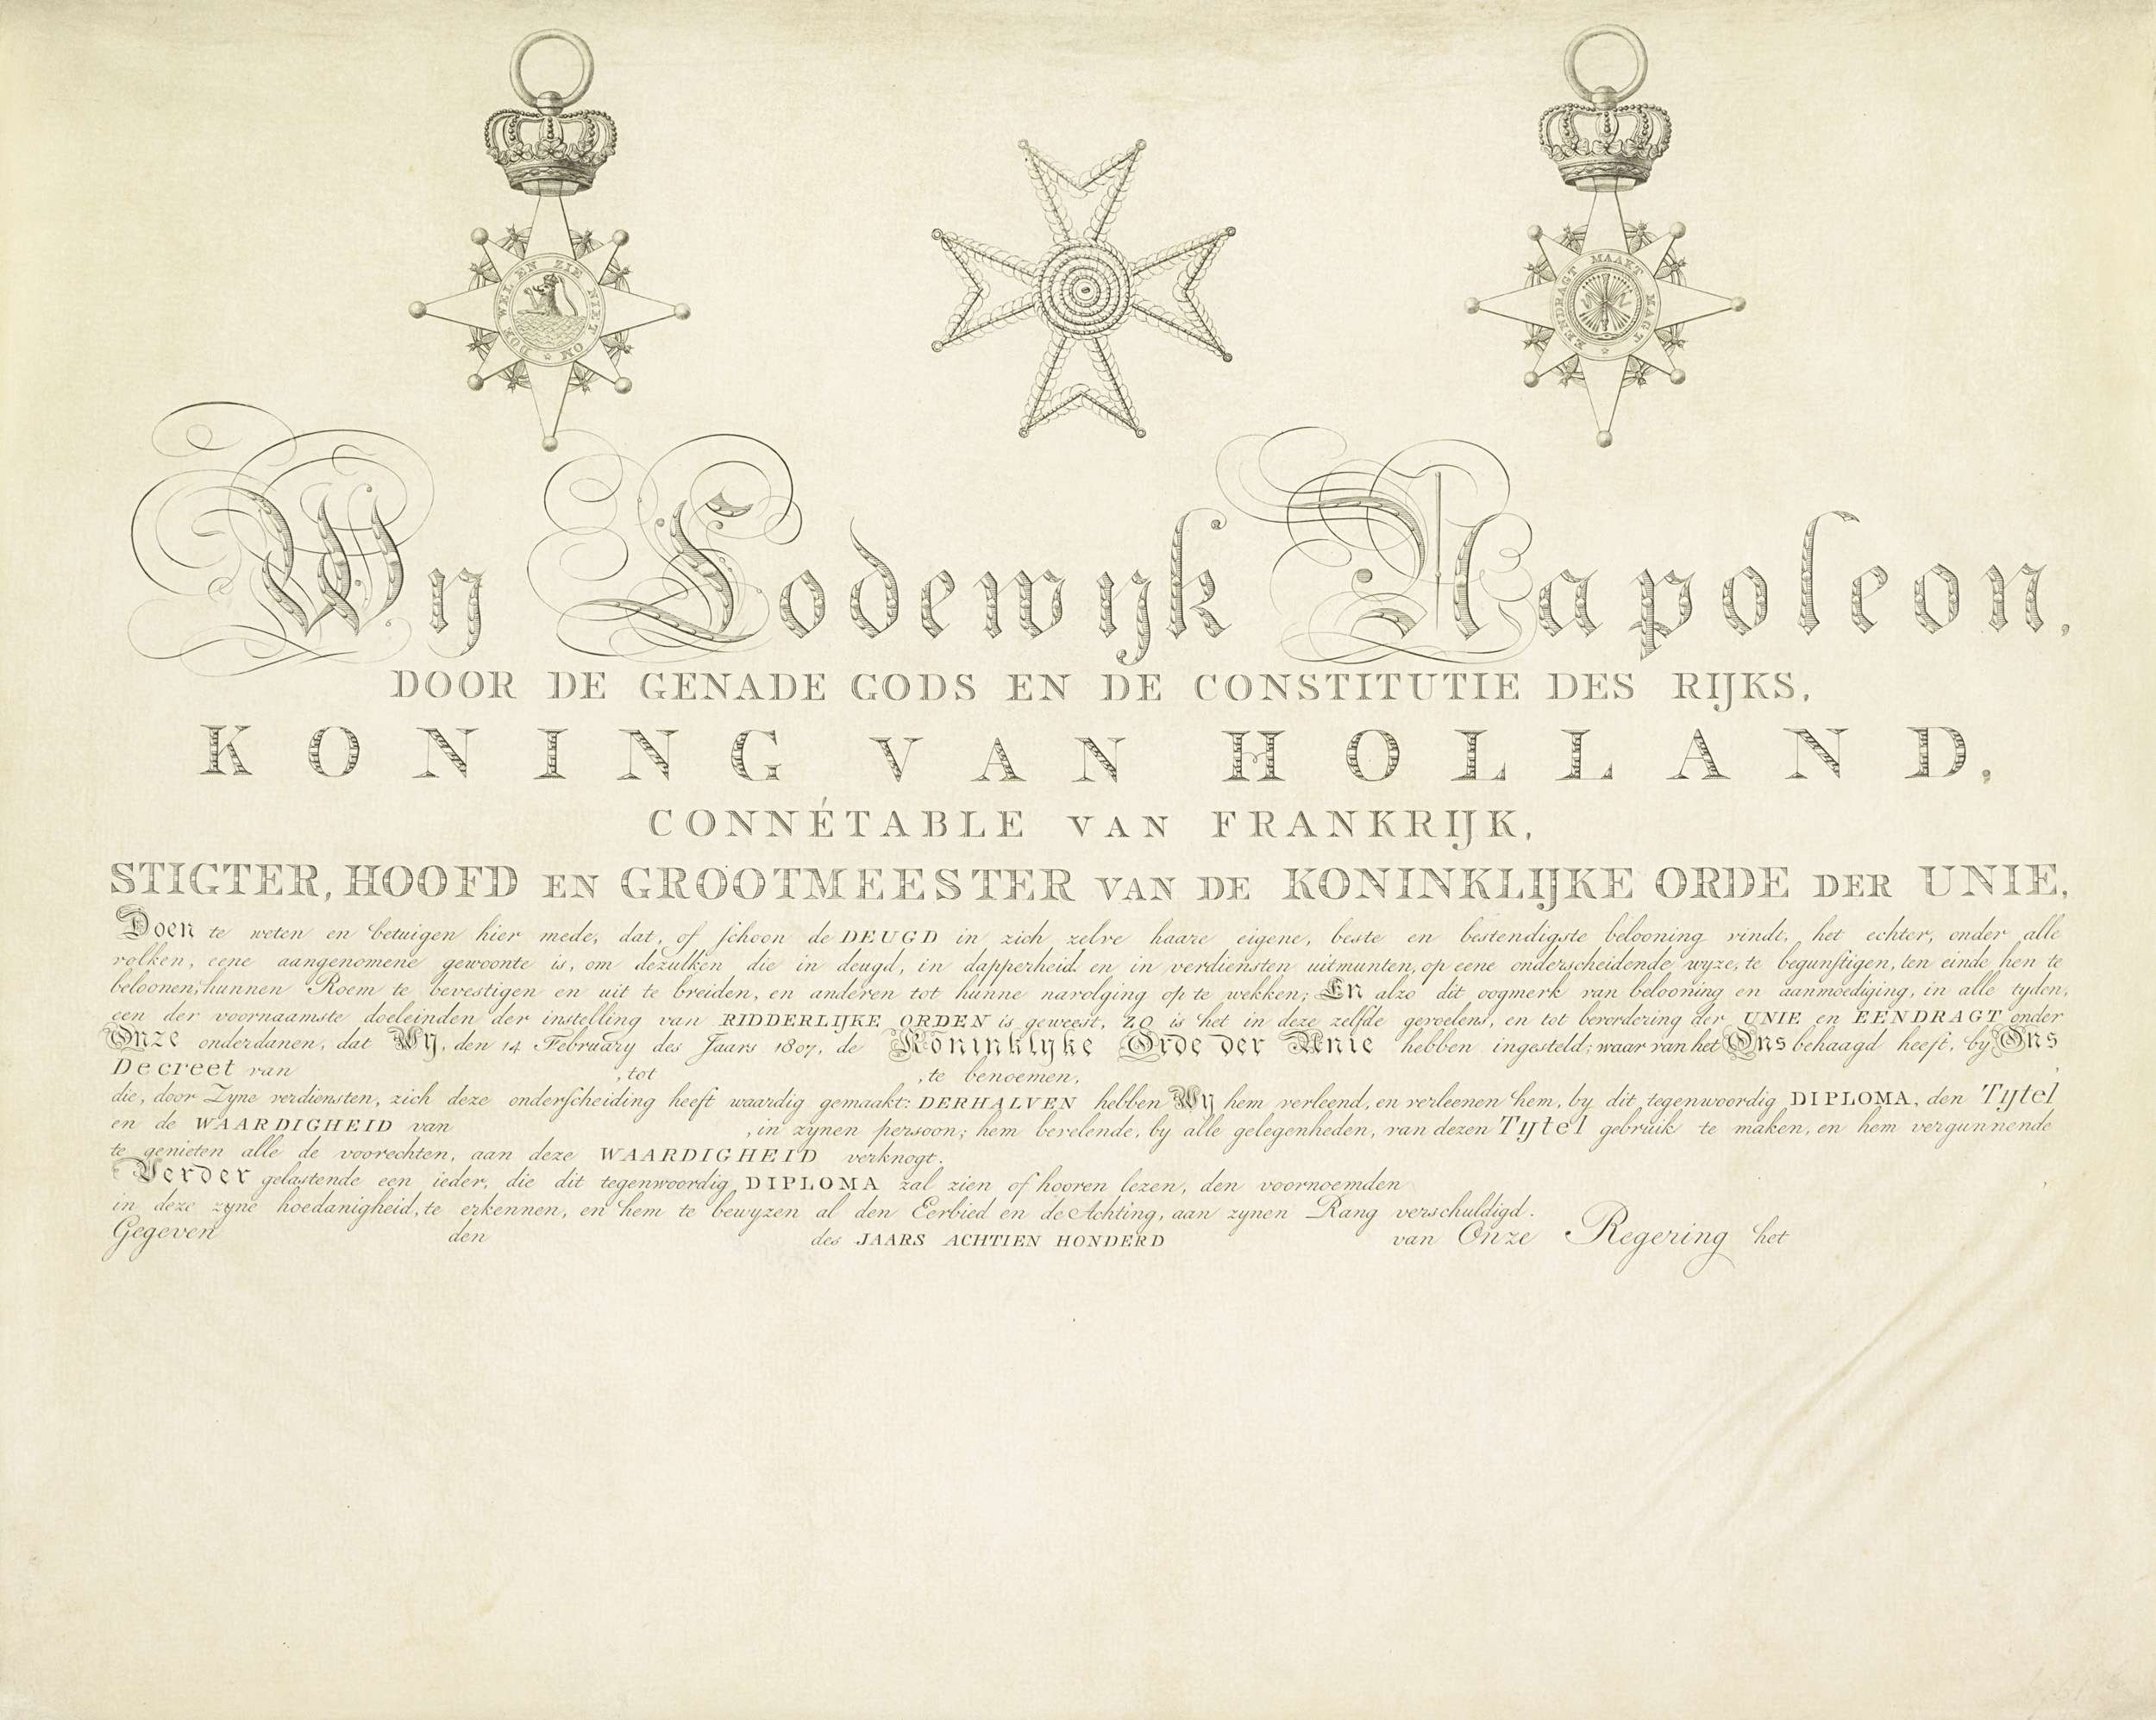 DOE WEL EN ZIE NIET OM
EENDRAGT MAAKT MAGT
Wij Lodewijk Napoleon,
DOOR DE GENADE GODS EN DE CONSTITUTIE DES RIJKS,
KONING VAN HOLLAND,
CONNÉTABLE VAN FRANKRIJK,
STIGTER, HOOFD EN GROOTMEESTER VAN DE KONINKLIJKE ORDE DER UNIE,
Doen te weten en betuigen hier mede, dat, of schoon de DEUGD in zich zelve haare eigene, beste en bestendigste belooning vindt, het echter, onder alle
volken, eene aangenomene gewoonte is, om dezulken die in deugd, in dapperheid en in verdiensten uitmunten, op eene onderscheidende wyze, te begunstigen, ten einde hen te
beloonen, hunnen Roem te bevestigen en uit te breiden, en anderen tot hunne navolging op te wekken; En alzo dit oogmerk van belooning en aanmoediging, in alle tyden,
een der voornaamste doeleinden der instelling van RIDDERLIJKE ORDEN is geweest, zo is het in deze zelfde gevoelens, en tot bevordering der UNIE en EENDRAGT onder
Onze onderdanen, dat Wij, den 14 February des Jaars 1807, de Koninklyke Orde der Unie hebben ingesteld; waar van het Ons behaagd heeft, by Ons
Decreet van , tot , te benoemen,
die, door Zyne verdiensten, zich deze onderscheiding heeft waardig gemaakt: DERHALVEN hebben Wij hem verleend, en verleenen hem, by dit tegenwoordig DIPLOMA, den Tijtel
en de WAARDIGHEID van , in zynen persoon; hem bevelende, by alle gelegenheden, van dezen Tijtel gebruik te maken, en hem vergunnende
te genieten alle de voorechten, aan deze WAARDIGHEID verknogt.
Verder gelastende een ieder, die dit tegenwoordig DIPLOMA zal zien of hooren lezen, den voornoemden
in deze zyne hoedanigheid, te erkennen, en hem te bewyzen al den Eerbied en de Achting, aan zynen Rang verschuldigd.
Gegeven den des JAARS ACHTIEN HONDERD van Onze Regering het